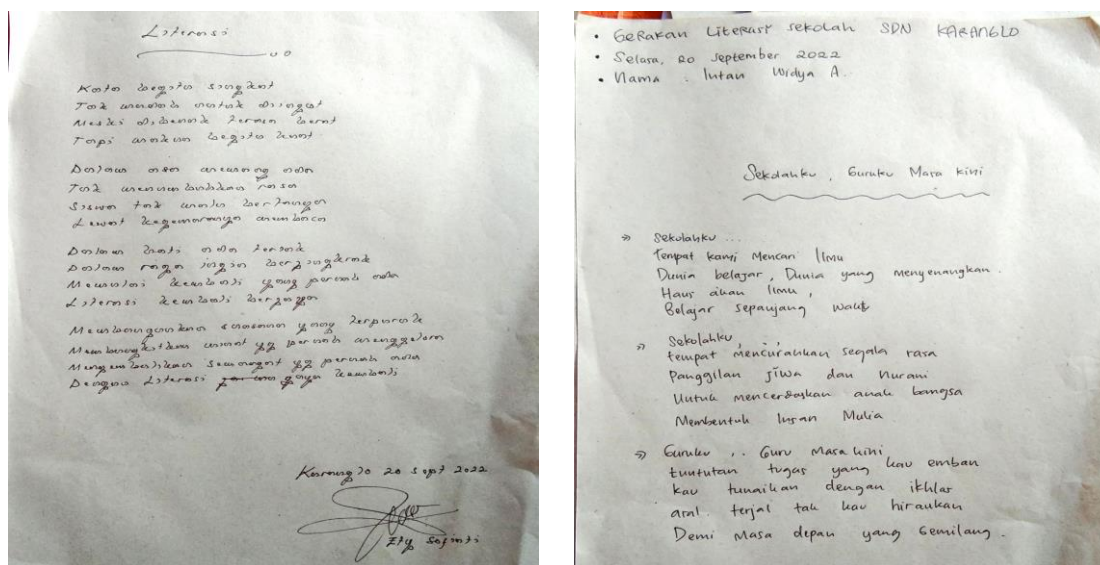 Literasi
Kata begitu singkat
Tak mudah untuk diingat
Meski dibenak terasa berat
Tapi begitu kuat
Dalam asa memang ada
Tak menumbuhkan rasa
Siswa tak malu
Lewat kegemaranya membaca
Dalam hati ada
Dalam raga ingin
Memulai kembali yang pernah ada
Literasi kembali berjaya
Membangunkan yang terpuruk
Membangkitkan yg pernah menggelora
Mengembalikan semangat yg pernah ada
Dengan Literasi gaya kembali
Karanglo 20 Sept 2022
Ety
• Gerakan Literasi Sekolah SDN KARANGLO
• Selasa, 20 September 2022
• Nama : Intan Widya A.
Sekolahku, Guruku Masa kini
» Sekolahku ...
Tempat kami Mencari Ilmu
Dunia belajar, Dunia yang menyenangkan.
Haus akan Ilmu,
Belajar sepanjang waktu
» Sekolahku, ...
tempat mencurahkan segala rasa
Panggilan jiwa dan Nurani
Untuk mencerdaskan anak bangsa
Membentuk Insan Mulia
» Guruku ,. Guru Masa kini
tuntutan tugas yang kau emban
kau tunaikan dengan ikhlas
aral terjal tak kau hiraukan
Demi Masa depan yang Gemilang.